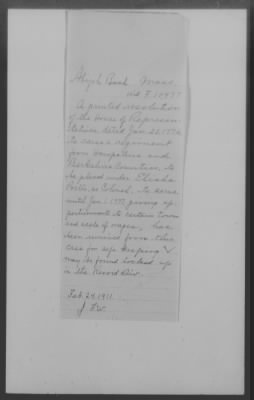 Elijah Bush Mass.
Wid. F. 10477
A printed resolution
of the House of Represen-
tatives, dated Jan. 22, 1776,
to raise a regiment
from Hampshire and
Berkshire Counties, to
be placed under Elisha
Porter, as Colonel, to serve
until Jan. 1, 1777, giving up
portionments to certain towns
and scale of wages, has
been removed from this
case for safe keeping &
may be found locked up
in the Record Div.
Feb. 24, 1911.